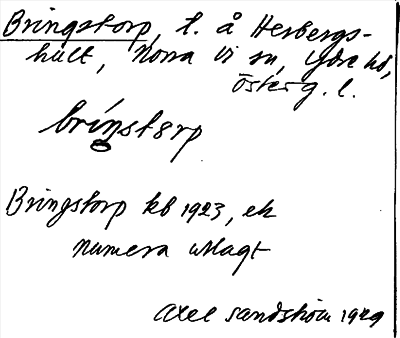 Bringstorp, t. å Herbergs-
hult, Norra Vi sn, Ydre hd,
Österg. l.
brínstorp
Bringstorp kb 1923, ek
numera utlagt
Axel Sandström 1929